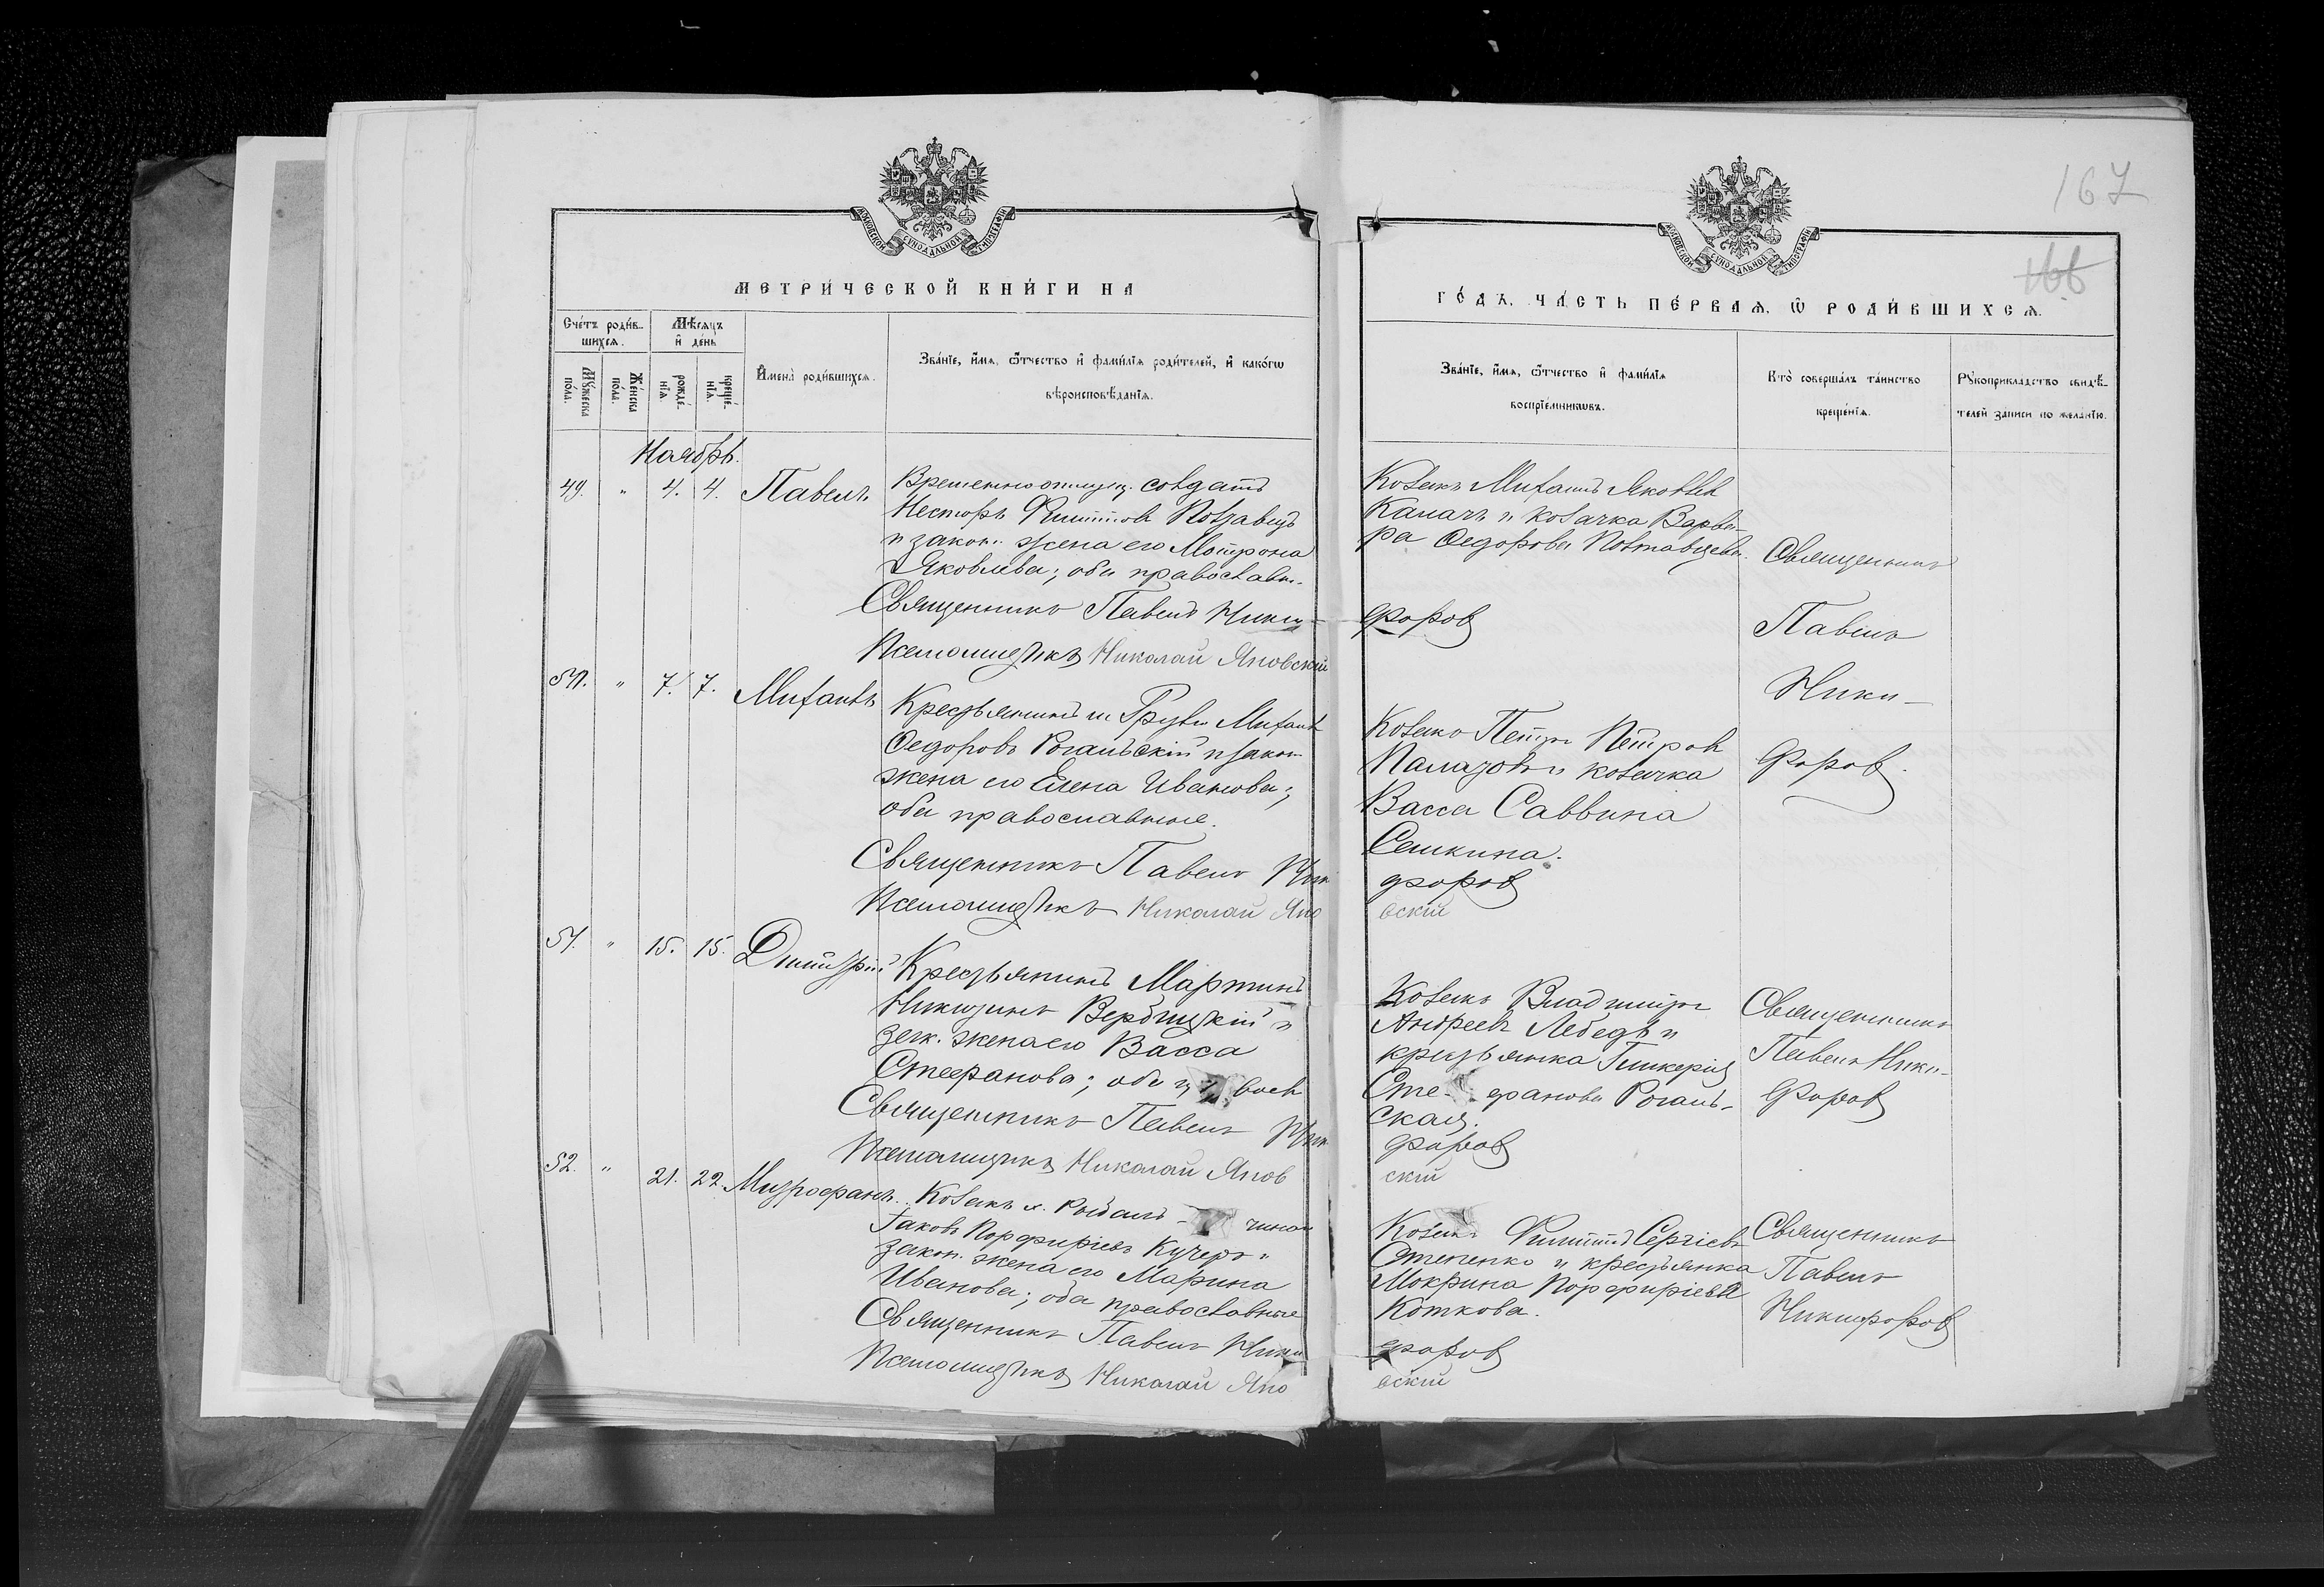 167
166
МЕТРИ́ЧЕСКОЙ КНИ́ГИ НА
ГО́ДЪ, ЧА́СТЬ ПЕ́РВАЯ, Ѿ РОДИ́ВШИХСЯ.
Сче́тъ роди́в-
шихся.
Мѣ́сяцъ
и҆ де́нь
Му́жеска
по́ла.
Же́нска
по́ла.
рожде́-
нїя.
креще́-
нїя.
И҆мена̀ роди́вшихся.
Зва́нїе, и҆́мя, ѻ҆́тчество и҆ фами́лїя роди́телей, и҆ како́гѡ
вѣроисповѣ́данїя.
Зва́нїе, и҆́мя, ѻ҆́тчество и҆ фами́лїя
воспрїе́мникѡвъ.
Кто̀ соверша́лъ та́инство
креще́нїя.
Рꙋкоприкла́дство свидѣ́-
телей за́писи по жела́нїю.
Ноябрь.
49. " 4. 4. Павелъ
Временно отпущ. солдатъ
Несторъ Филиппов
и закон. жена его Мотрона
Яковлева; оба православн.
Священникъ Павелъ Ники-
форов
Псаломщикъ Николай Яновский
Козакъ Михаилъ Яковлев
Калачъ и козачка Варва-
ра Федорова Полтавцева.
Священникъ
Павелъ
Ники-
форов.
50. " 7. 7. Михаилъ
Крестьянинъ Михаил
Федоровъ Рогальскій и закон.
жена его Елена Иванова;
оба православные.
Священникъ Павелъ Ники
форов
Псаломщикъ Николай Яно
вскій
Козакъ Петръ Петров
и козачка
Васса Саввина
Сешкина.
51. " 15. 15. Димитрій
Крестьянинъ Мартинъ
Никитинъ Вербицкій и
зак. жена его Васса
Стефанова; оба
Священникъ Павелъ Ник
форов
Псаломщикъ Николай Янов
скій
Козакъ Владимиръ
Андреевъ Лебедь и
крестьянка Гликерія
Сте- фанова Рогаль-
ская.
Священникъ
Павелъ Ники-
форов
52. " 21. 22. Митрофанъ.
Козакъ х.
Іаковъ Порфиріевъ Кучеръ и
закон. жена его Марина
Иванова; оба православные
Священникъ Павелъ Ники
форов
Псаломщикъ Николай Яно
вскій
Козакъ Филиппъ Сергіевъ
Степенко и крестьянка
Мокрина Порфиріева
Коткова.
Священникъ
Павелъ
Никифоров